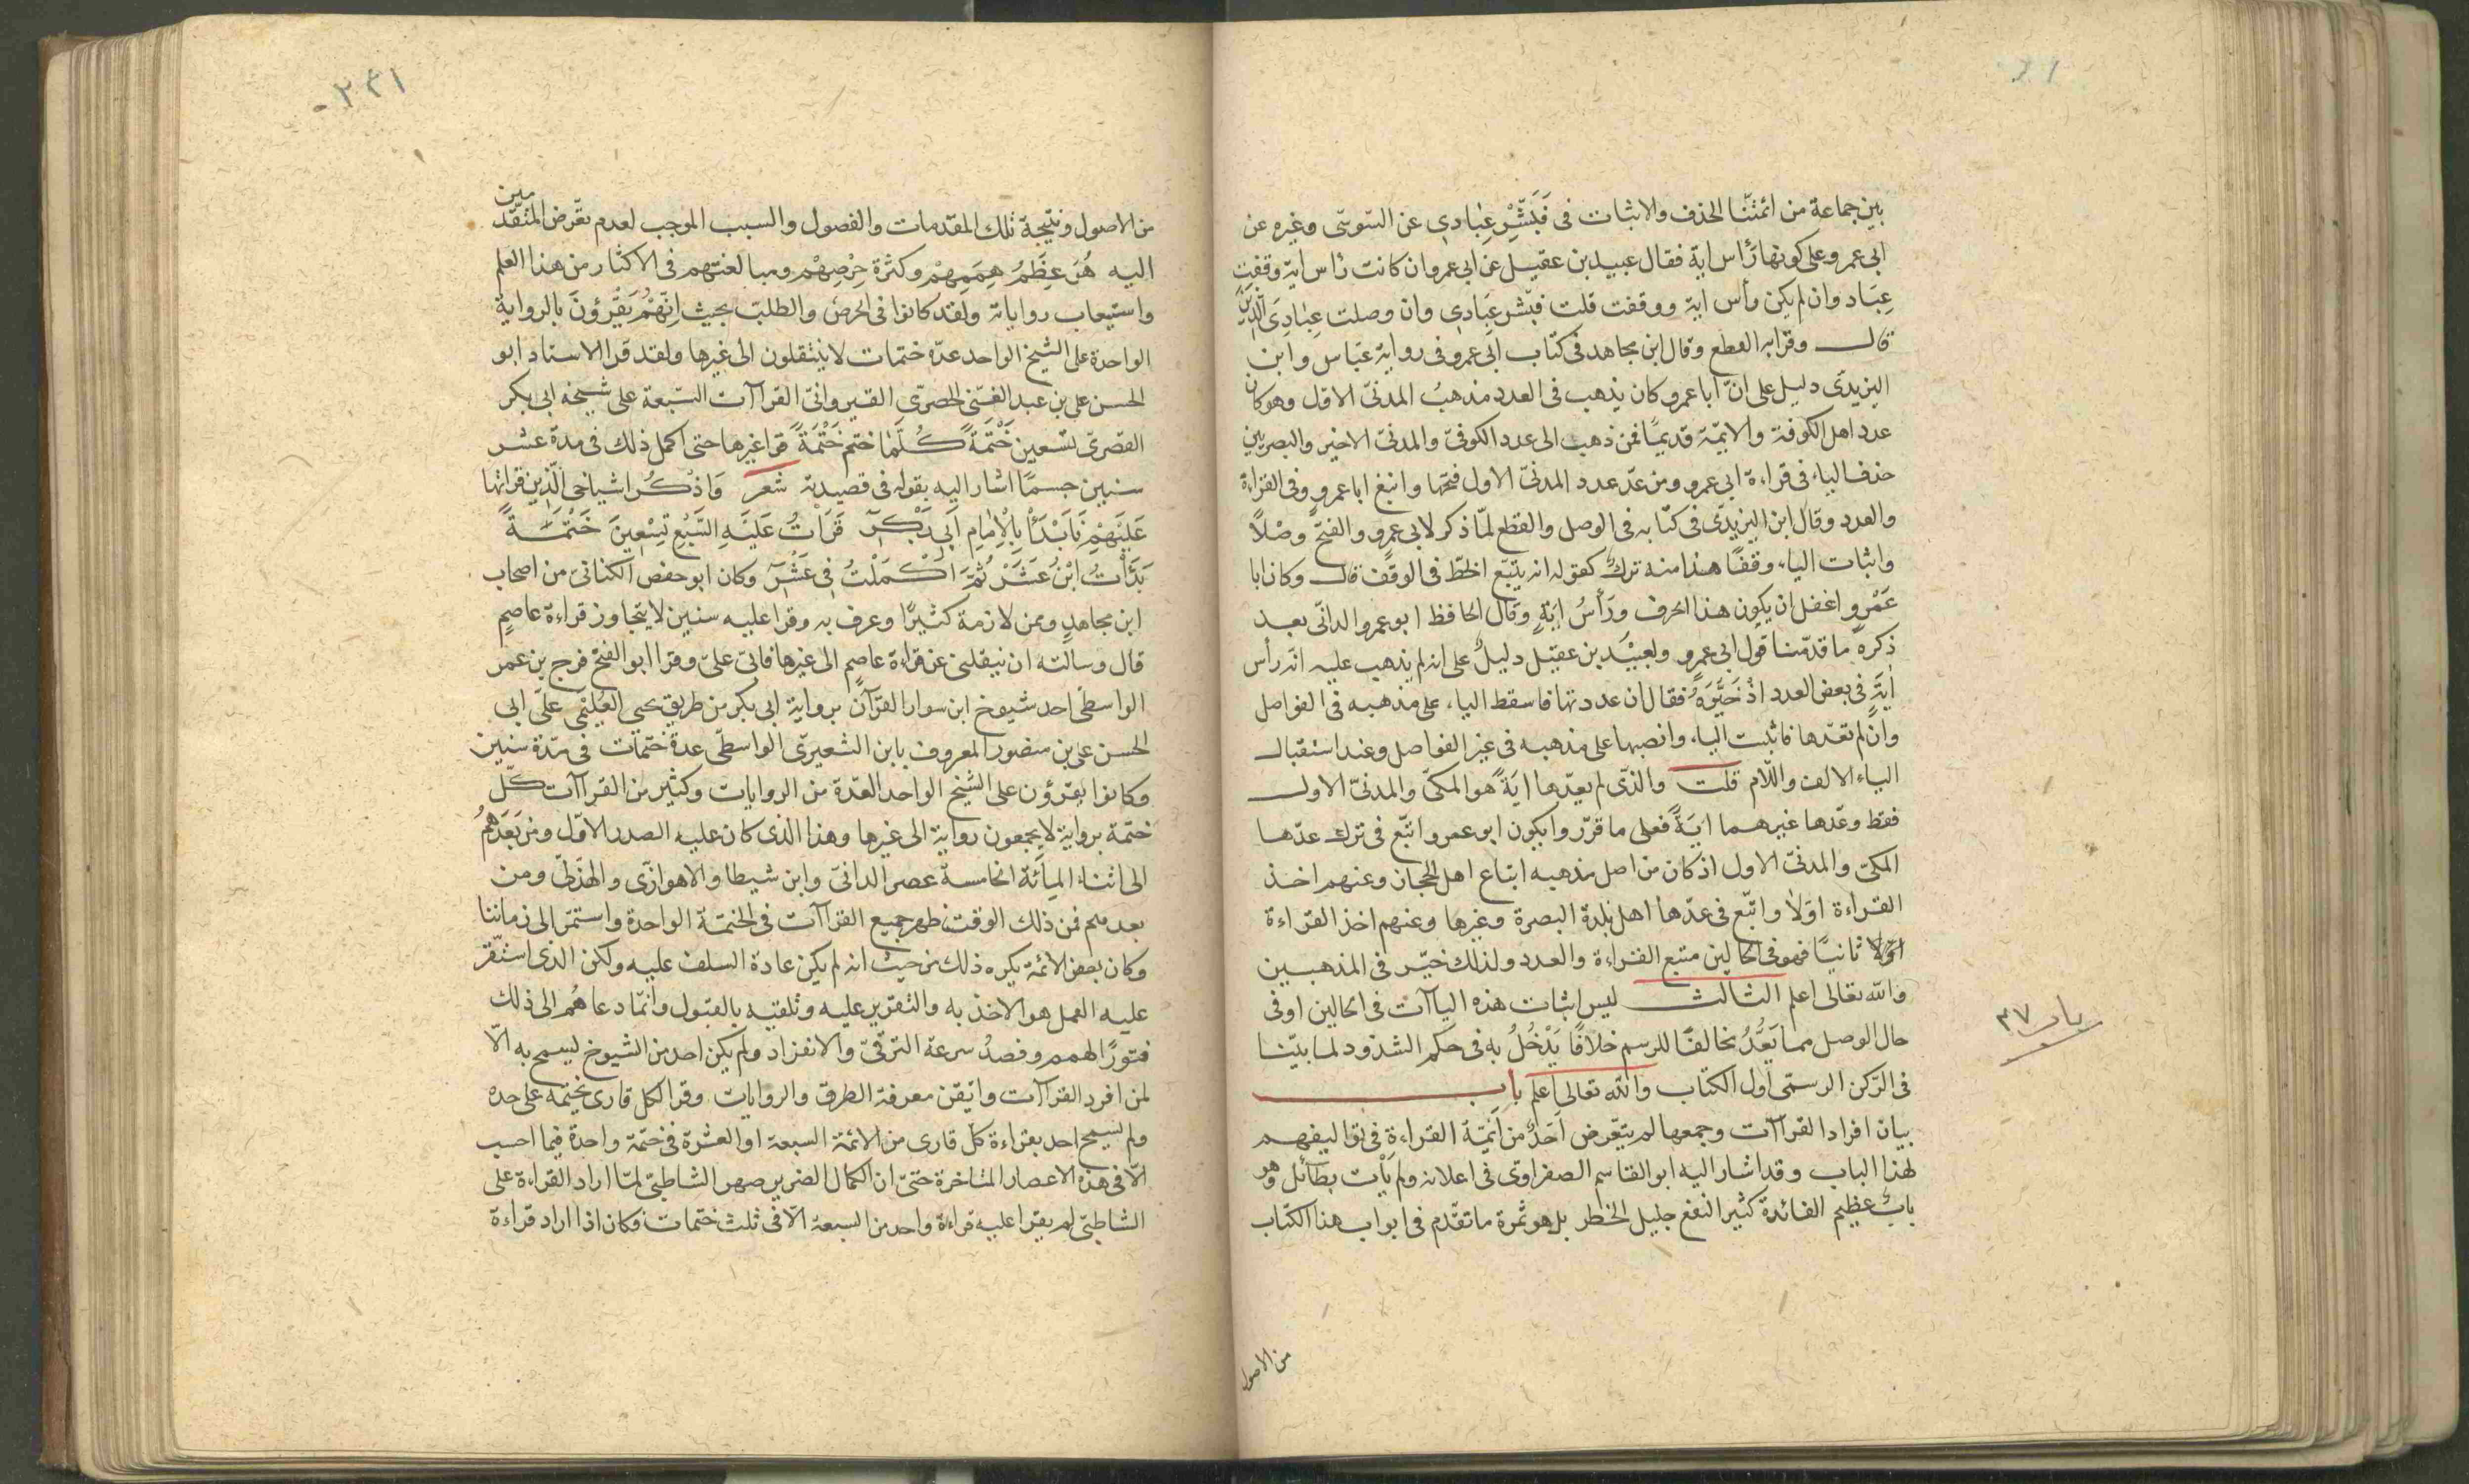 بين جماعة من ائمتنا الحذف والاثبات فى فَبَشِّرْ عِبَادِى عن السّوسّى وغيره عن
ابى عمرو على كونها رأس اية فقال عبيد بن عقيل عن ابى عمرو ان كانت رأس اية وقفت
عِبَاد وان لم يكن رأس اية ووقفت قلت فبشّر عِبَادى وان وصلت عِبَادِىَ الَّذِينَ
قال وقرا به القطع وقال ابن مجاهد فى كتاب ابى عمرو فى رواية عباس وابن
اليزيدّى دليل على انّ ابا عمرو كان يذهب فى العدد مذهبُ المدنىّ الاول وهو كان
عدد اهل الكوفة والايمّة قديمًا فمن ذهب الى عدد الكوفىّ والمدنىّ الاخير والبصريين
حذف الياء فى قراءة ابى عمرو ومن عدّ عدد المدنىّ الاول فتحها واتبع ابا عمروٍ وفى القراءة
والعدد وقال ابن اليزيدّى فى كتابه فى الوصل والقطع لمّا ذكر لابى عمرو والفتح وصْلاً
واثبات الياء وقفًا هذا منه تركٌ كقوله انه يتبع الخطّ فى الوقف قال وكان ابا
عَمْرو اغفل ان يكون هذا الحرف ورَأسُ ايَةٍ وقال الحافظ ابو عمرو الدانّى بعد
ذكره ما قدّمنا قول ابى عمرو ولعبيْد بن عقيل دليلٌ على انه لم يذهب عليه انه رأس
ايَةٍ فى بعض العدد اذ خَيَّرَهُ فقال ان عددتها فاسقط الياء على مذهبه فى الفواصل
وان لم تعدّها فاثبت الياء وانصبها على مذهبه فى غير الفواصل وعند استقبال
الياء الالف واللّام قلت والذّى لم يعدّها ايَةً هو المكىّ والمدنىّ الاول
فقط وعدّها غيرهما ايَةً فعلى ما قرّروا يكون ابو عمرو اتبّع فى ترك عدّها
المكىّ والمدنىّ الاول اذ كان من اصل مذهبه اتباع اهل الحجاز وعنهم اخذ
القراءة اوّلا واتبّع فى عدّها اهل بلدة البصرة وغيرها وعنهم اخذ القراءة
اوّلا ثانيًا فهو فى الحالين متبع القراءة والعدد ولذلك خيّر فى المذهبين
والله تعالى اعلم الثالث ليس اثبات هذه الياآت فى الحالين اوفى
حال الوصل مما يَعُدُّ مخالفًا للرسم خلافًا يَدْخُلُ به فى حكم الشذوذ لما بيّنا
فى الرّكن الرسمى اول الكتاب والله تعالى اعلم باب
بيان افراد القراآت وجمعها لم يتعّرض اَحَدٌ من اَئمّة القراءة فى تواليفهم
لهذا الباب وقد اشار اليه ابو القاسم الصفراوى فى اعلانه ولم يأت بطائل وهو
بابٌ عظيم الفائدة كثير النفع جليل الخطر بل هو ثمرة ما تقدّم فى ابواب هذا الكتاب
من الاصول
باب ٣٧
٢٣١
من الاصول ونتيجة تلك المقدمات والفصول والسبب الموجب لعدم تعّرض المتقدّمين
اليه هُوَ عِظَمُ هِمَمِهِمْ وكثرة حِرْصِهِمْ ومبالغتهم فى الاكثار من هذا العلم
واستيعاب رواياته ولقد كانوا فى الحرص والطلب بحيث اِنَّهُمْ يَقْرؤُنَ بالرواية
الواحدة على الشيخ الواحد عدّة ختمات لا ينتقلون الى غيرها ولقد قرا الاستاد ابو
الحسن على بن عبد الغنّى الحصرّى القيروانىّ القراآت السّبعة على شيخه ابى بكر
القصرىّ تسعين خَتْمَةً كُلَّمَا ختم خَتْمَةً قرا غيرها حتى اكمل ذلك فى مدة عشر
سنين حسبما اشار اليه بقوله فى قصيدته شعر وَاذْكُر اشياخى الّذين قراتها
عَلَيْهِمْ فَاَبْدَأْ بِالْاِمَامِ اَبِى بَكْرٍ قَرَأتُ عَلَيْهِ السَّبْعِ تِسْعِينَ خَتْمَةً
بَدَأْتُ ابْنُ عَشْرٍ ثُمَّ اَكْمَلْتُ فِى عَشْرٍ وكان ابو حفص الكتانىّ من اصحاب
ابن مجاهدٍ وممن لازمة كثيرًا وعرف به وقرا عليه سنين لا يتجاوز قراءة عاصمٍ
قال وسالته ان ينقلنى عن قراءة عاصم الى غيرها فابى علىّ وقرا ابو الفتح فرج بن عمر
الواسطّى احد شيوخ ابن سوار القرآن برواية ابى بكر من طريق يحيى العُلَيْمى على ابى
الحسن على بن منصور المعروف بابن الشعيرىّ الواسطّى عدة ختمات فى مدّة سنين
وكانوا يقرؤن على الشيخ الواحد العدّة من الروايات وكثير من القراآت كلّ
ختمة برواية لا يجمعون رواية الى غيرها وهذا الذى كان عليه الصدر الاوّل ومن بَعَدَهُمُ
الى اثناء الميأئة الخامسة عصر الدانىّ وابن شيطا والاهوازّى والهذلىّ ومن
بعدهم فمن ذلك الوقت ظهر جميع القراآت فى الختمة الواحدة واستمّر الى زماننا
وكان بعض الائمة يكره ذلك من حيث انه لم يكن عادة السلف عليه ولكن الذى استقّر
عليه العمل هو الاخذ به والتقرير عليه وتلقيه بالقبول وانّما دعاهُم الى ذلك
فتورًا لهمم وقصدُ سرعة الترقىّ والانفراد ولم يكن احد من الشيوخ يسمح به الاّ
لمن افرد القراآت واتقن معرفة الطرق والروايات وقرا لكل قارى بختمة على حدة
ولم يسمح احد بقراءة كل قارى من الائمة السبعة او العشرة فى ختمة واحدة فيما احسب
الاّ فى هذه الاعصار المتاخرة حتىّ ان الكمال الضرير صهر الشاطبىّ لمّا اراد القراءة على
الشاطبىّ لم يقرا عليه قراءة واحد من السبعة الاّ فى ثلث ختمات فكان اذا اراد قراءة